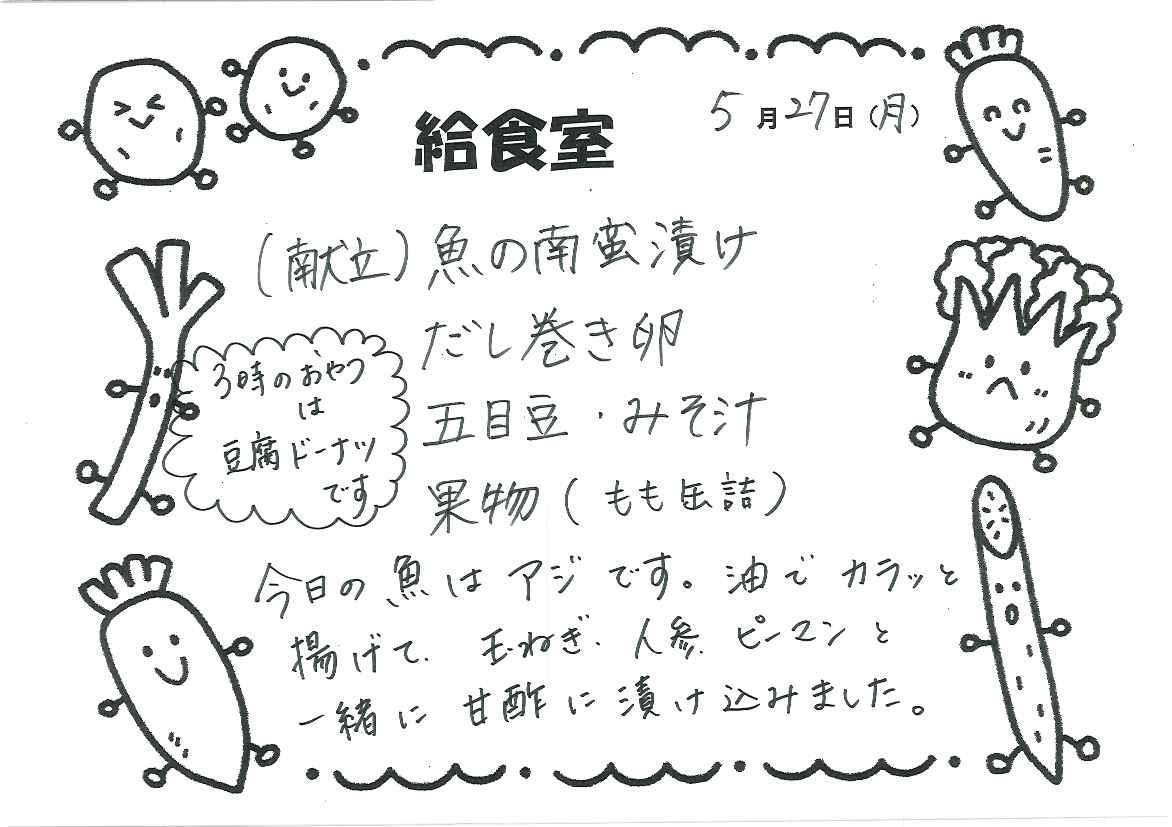 給食室
5月27日(月)
(献立)魚の南蛮漬け
だし巻き卵
五目豆・みそ汁
果物(もも缶詰)
3時のおやつ
は
豆腐ドーナツ
です
今日の魚はアジです。油でカラッと
揚げて、玉ねぎ、人参、ピーマンと
一緒に甘酢に漬け込みました。